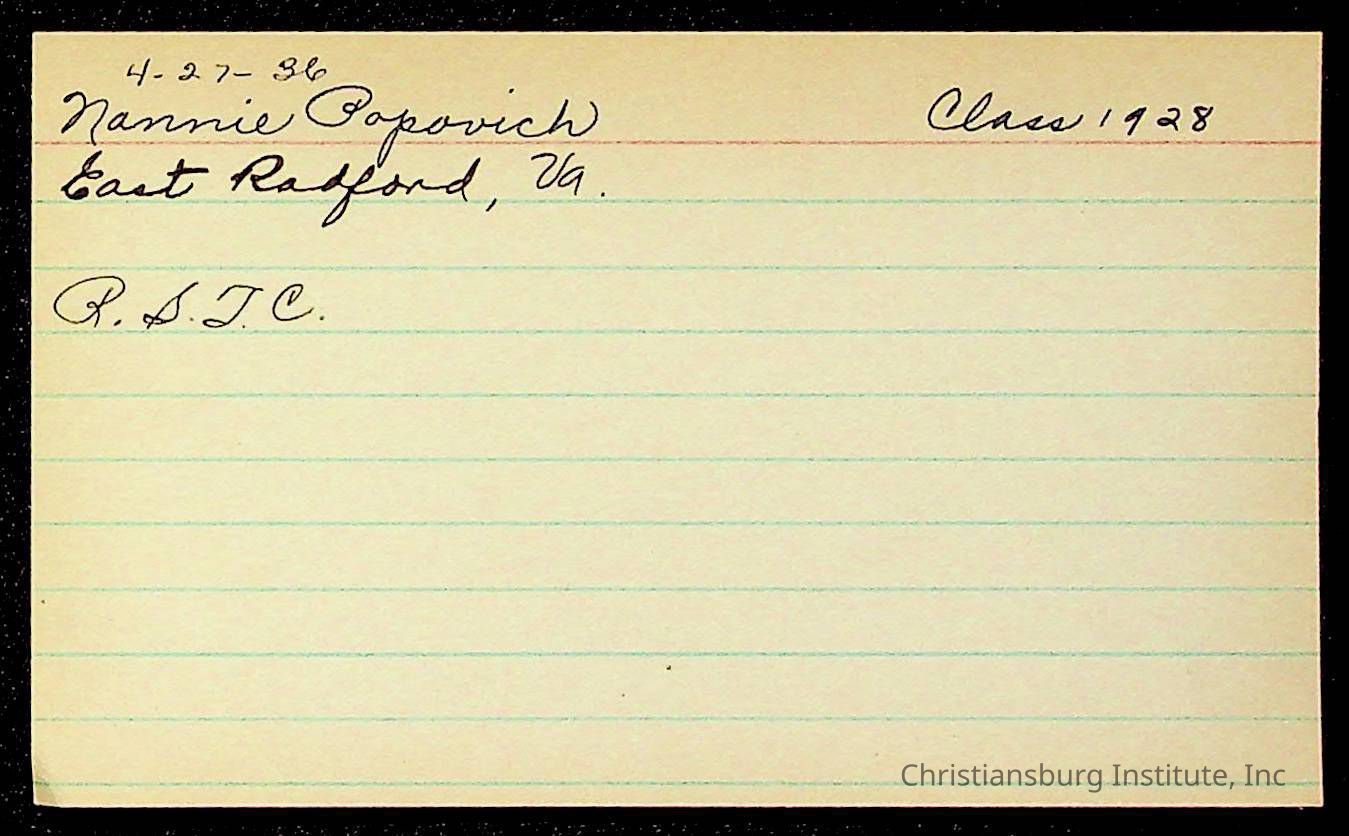 4-27-36
Nannie Popovich Class 1928
East Radford, Va.
R. S. T. C.
Christiansburg Institute, Inc